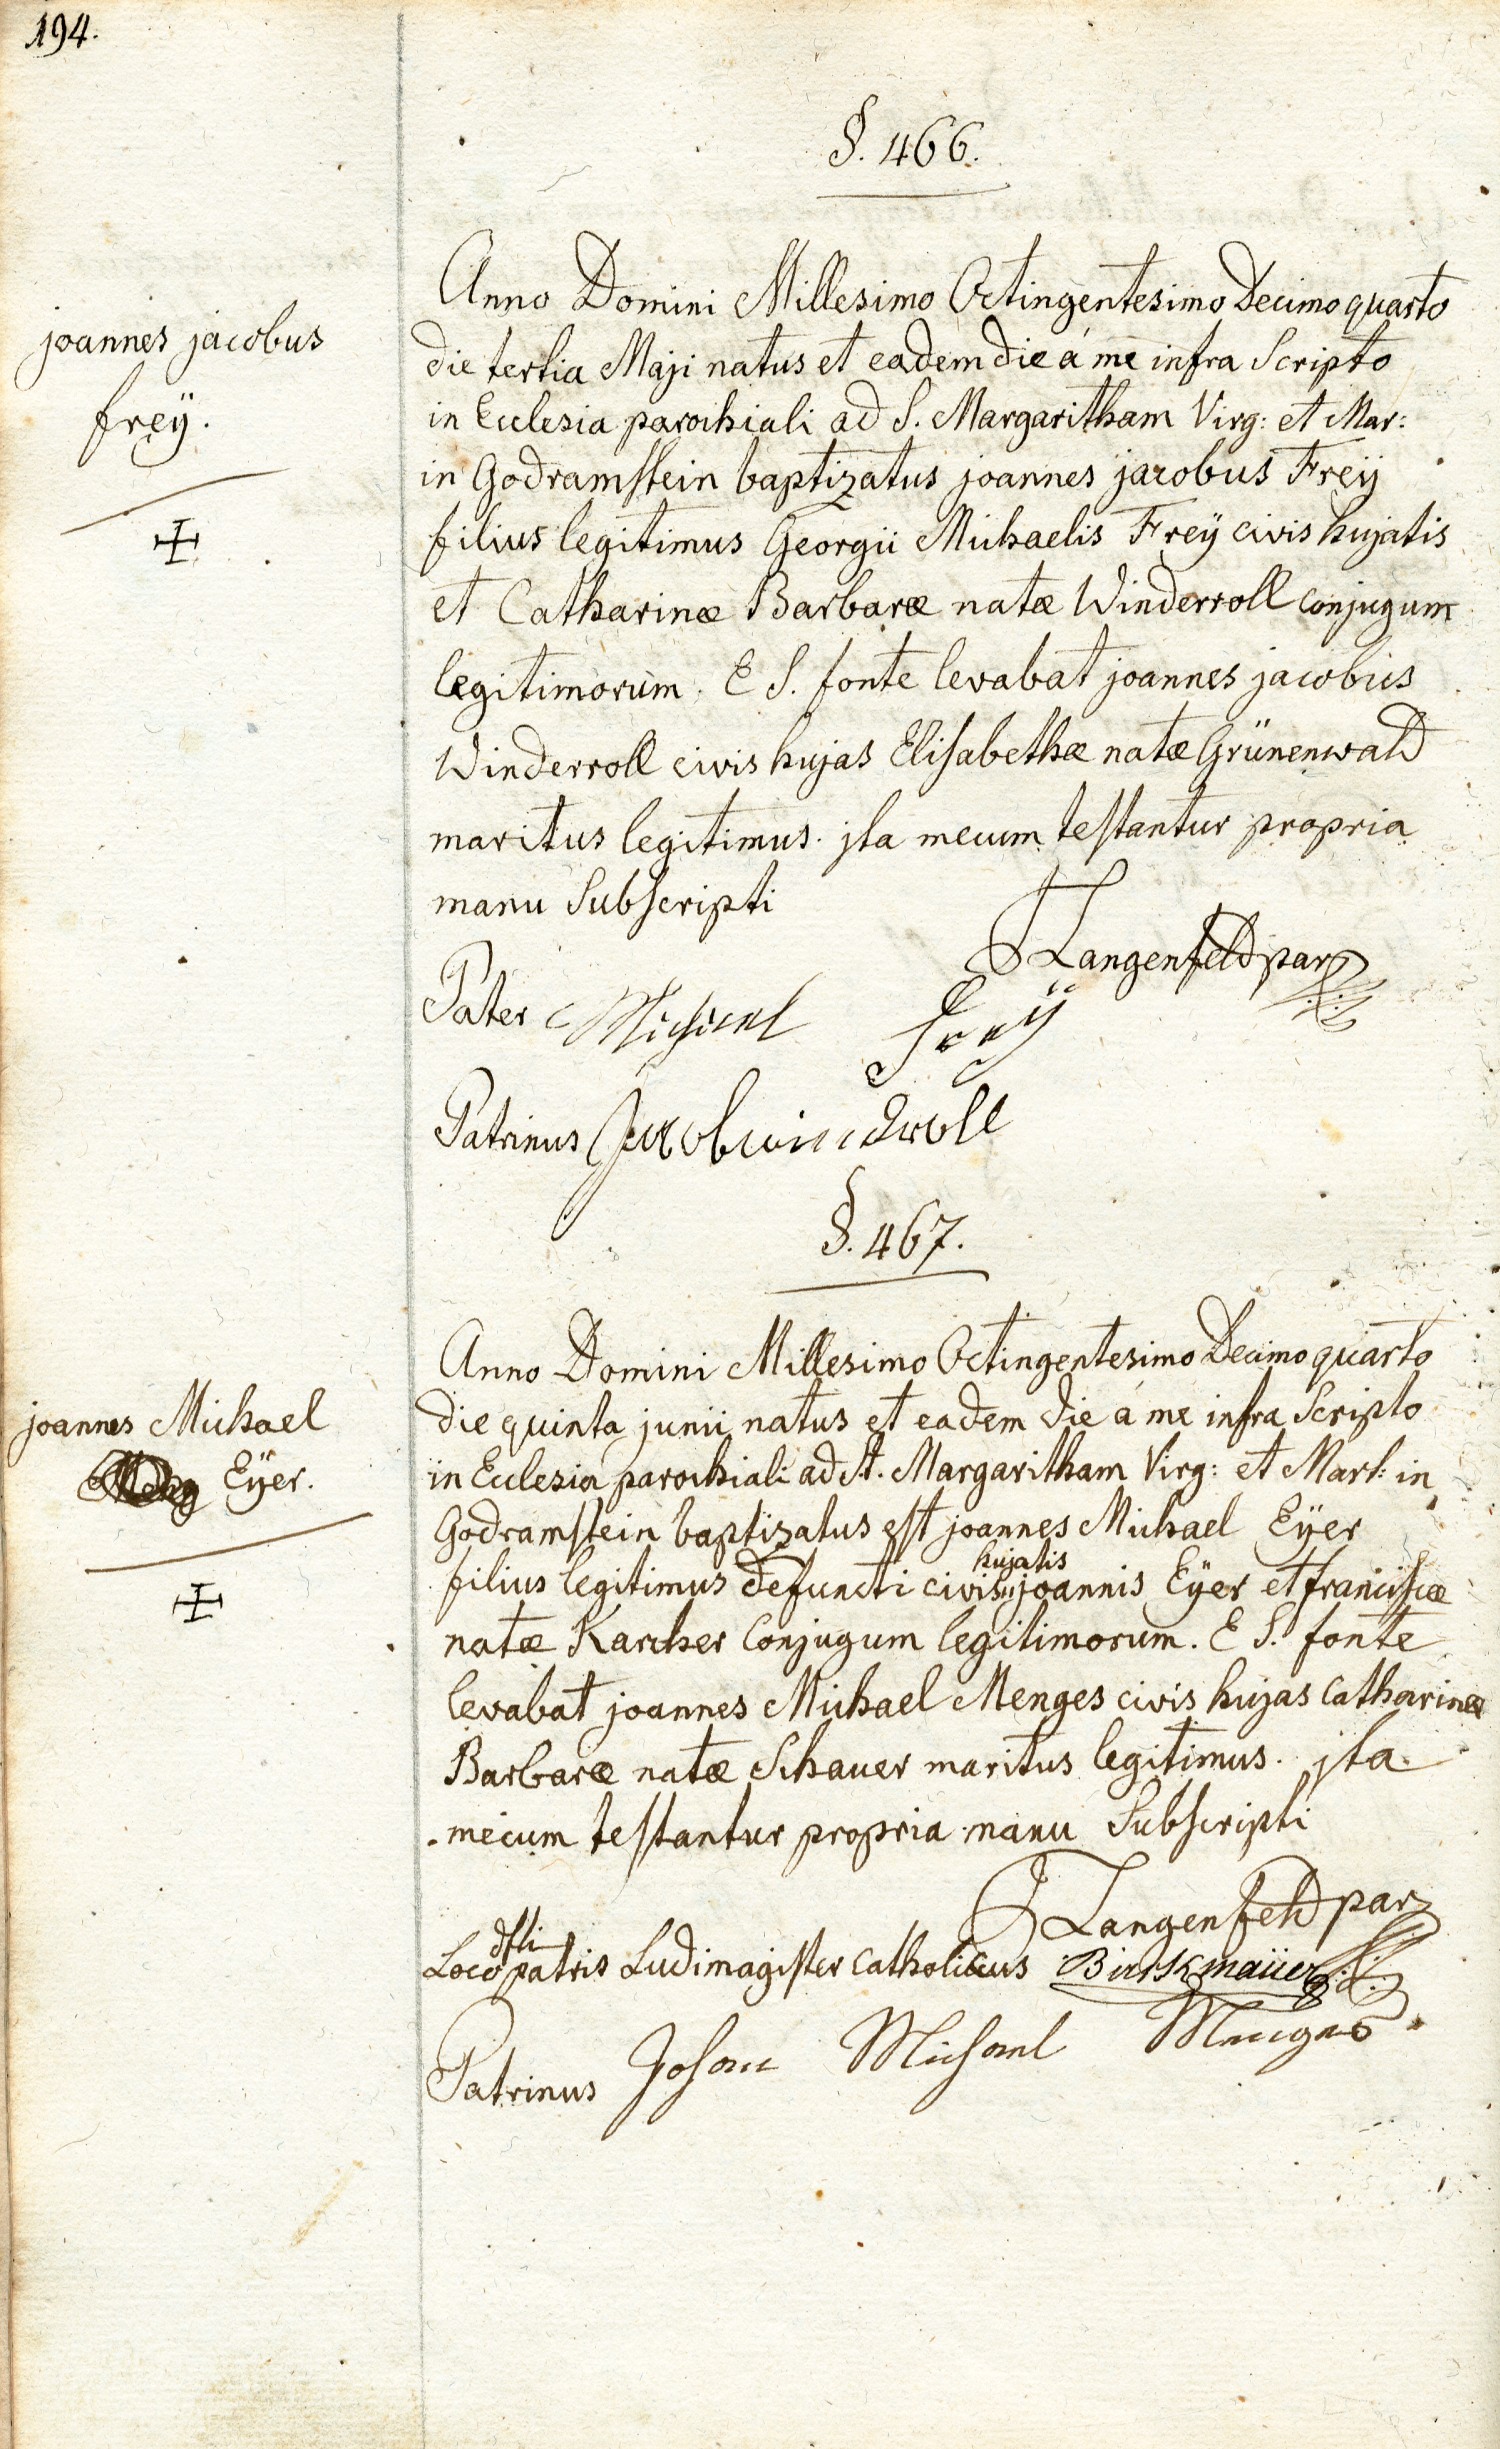 194.
§. 466.
joannes jacobus
freÿ.
Anno Domini Millesimo Octingentesimo Decimo quarto
die tertia Maji natus et eadem die á me infra Scripto
in Ecclesia parochiali ad S. Margaritham Virg: et Mar:
in Godramstein baptizatus joannes jacobus Freÿ
filius legitimus Georgii Michaelis Freÿ civis hujatis
et Catharinæ Barbaræ natæ Winderroll conjugum
legitimorum. E S. fonte levabat joannes jacobus
Winderroll civis hujas Elisabethæ natæ Grünenwald
maritus legitimus. jta mecum testantur propria
manu Subscripti
Langenfeld par
Pater Michael Freÿ
Patrinus Jacob windroll
§. 467.
joannes Michael
Eÿer.
Anno Domini Millesimo Octingentesimo Decimo quarto
die quinta junii natus et eadem die á me infra Scripto
in Ecclesia parochiali ad St. Margaritham Virg: et Mart: in
Godramstein baptizatus est joannes Michael Eÿer
filius legitimus defuncti civis hujatis joannis Eÿer et francisca
natæ Karcher Conjugum legitimorum. E S. fonte
levabat joannes Michael Menges civis hujas Catharinæ
Barbaræ natæ Schauer maritus legitimus. jta
mecum testantur propria manu Subscripti
Langenfeld par
Loco dfti patris Ludimagister Catholicus
Patrinus Johann Michael Menges